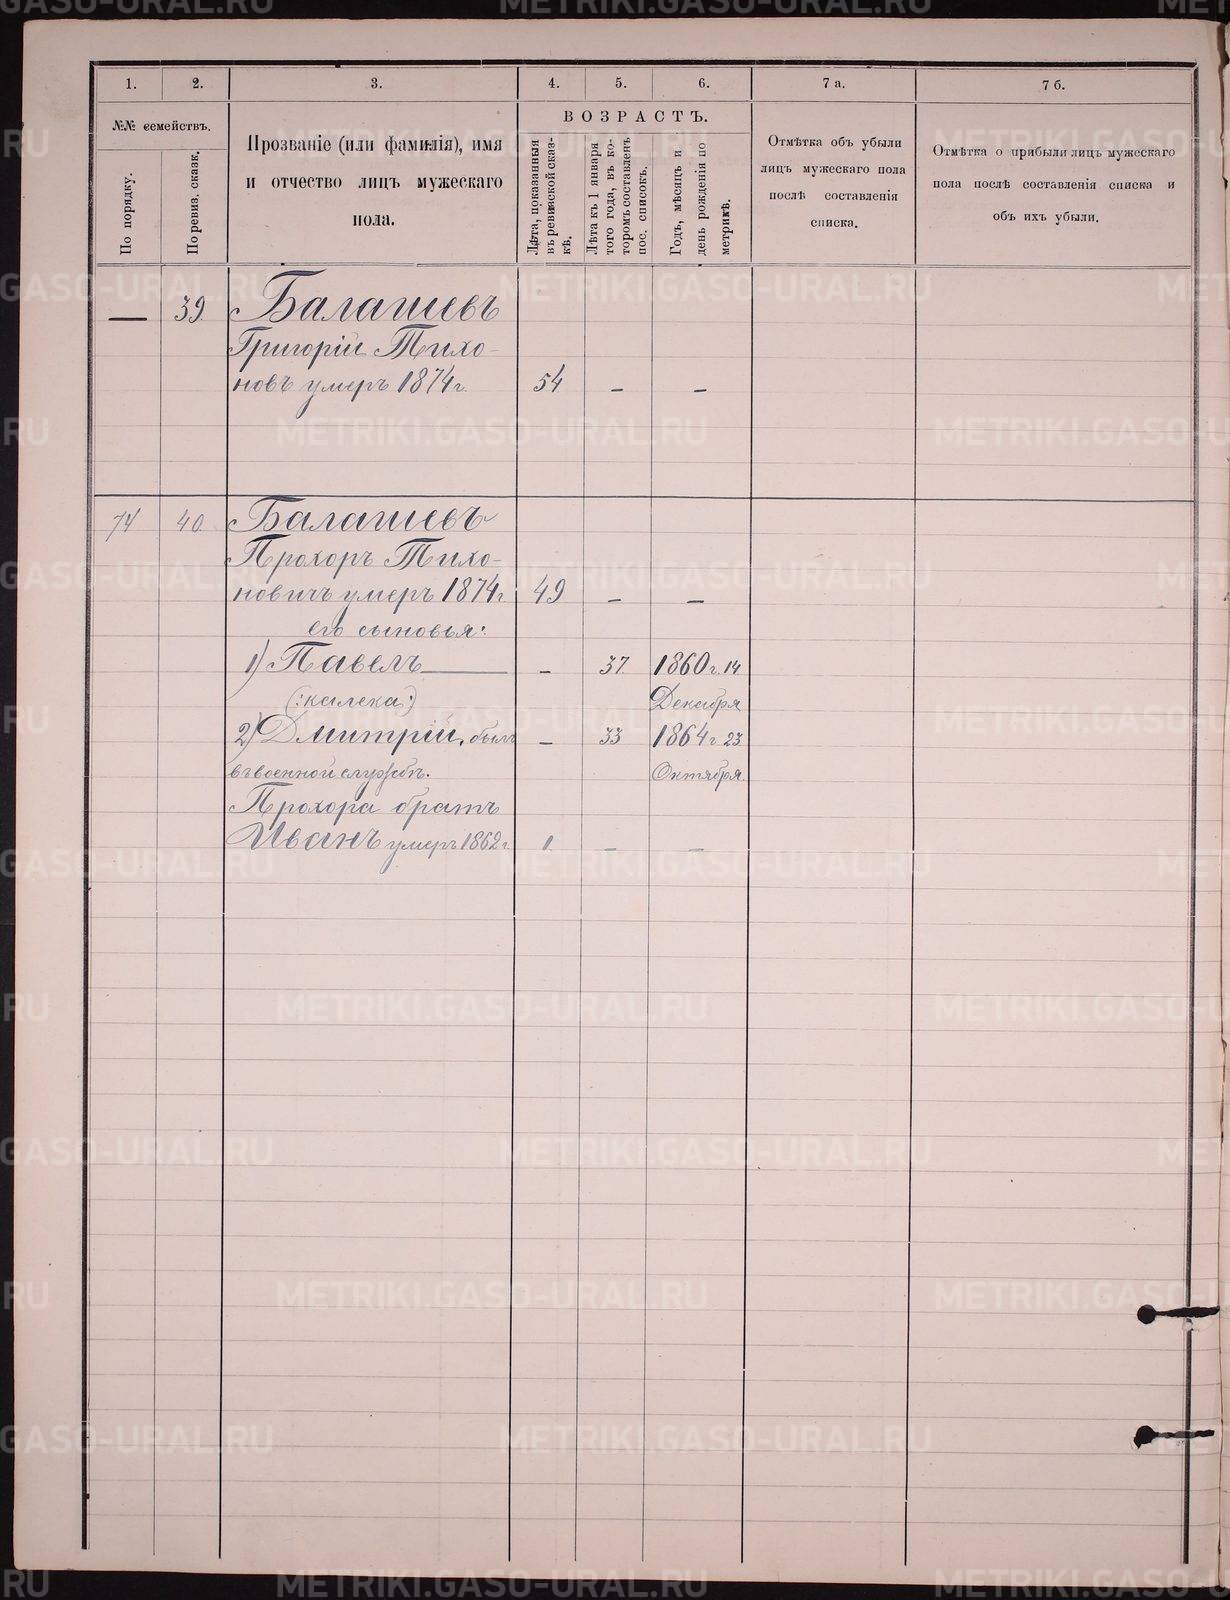 1.
2.
3.
4.
5.
6.
7 а.
7 б.
№№ семействъ.
По порядку.
По ревиз. сказк.
Прозваніе (или фамилія), имя
и отчество лицъ мужескаго
пола.
ВОЗРАСТЪ.
Лѣта, показанныя
въ ревизской сказ-
кѣ.
Лѣта къ 1 января
того года, въ ко-
торомъ составленъ
пос. списокъ.
Годъ, мѣсяцъ и
день рожденія по
метрикѣ.
Отмѣтка объ убыли
лицъ мужескаго пола
послѣ составленія
списка.
Отмѣтка о прибыли лицъ мужескаго
пола послѣ составленія списка и
объ ихъ убыли.
— 39. Балашевъ
Григорій Тихо-
новъ умеръ 1874 г. 54 — —
74 40. Балашевъ
Прохоръ Тихо-
новичъ умеръ 1874 г 49 — —
его сыновья:
1) Павелъ — 37. 1860 г. 14
(:калека:) Декабря
2) Дмитрій, былъ — 33 1864 г. 23
въ военной службѣ. Октября.
Прохора братъ
Иванъ умеръ 1862 г. 1. — —
METRIKI.GASO-URAL.RU